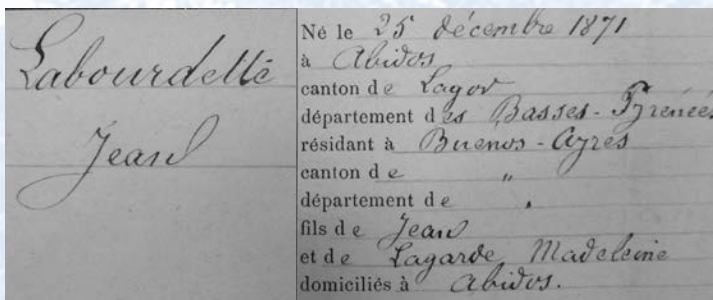 Labourdette
Jean
Né le 25 décembre 1871
à Abidos
canton de Lagor
département des Basses-Pyrénées
résidant à Buenos-Ayres
canton de "
département de "
fils de Jean
et de Lagarde Madeleine
domiciliés à Abidos.